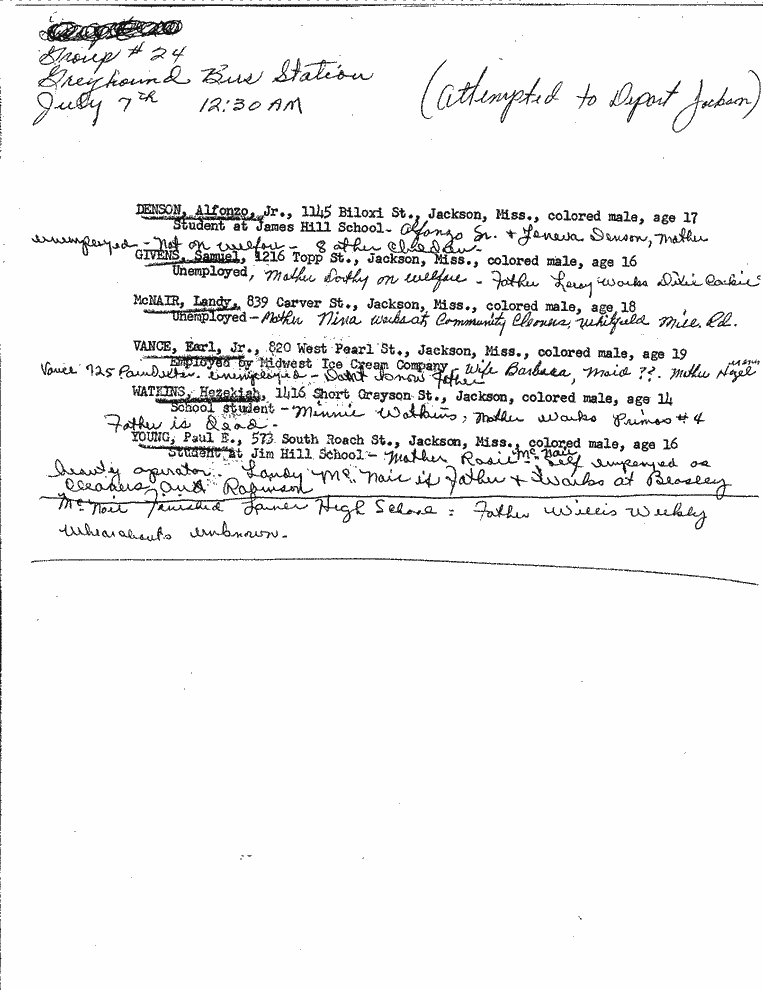 Group # 24
Greyhound Bus Station
July 7th 12:30 AM
(Attempted to Depart Jackson)
DENSON, Alfonzo, Jr., 1145 Biloxi St., Jackson, Miss., colored male, age 17
Student at James Hill School - Alfonzo Sr. + Geneva Denson, Mother
unemployed - Not on welfare - 8 other Children -
GIVENS, Samuel, 1216 Topp St., Jackson, Miss., colored male, age 16
Unemployed, Mother Dorthy on welfare - Father Leroy Works Dixie
McNAIR, Landy, 839 Carver St., Jackson, Miss., colored male, age 18
Unemployed - Mother Nina works at Community Cleaners, Whitfield Mill Rd.
VANCE, Earl, Jr., 820 West Pearl St., Jackson, Miss., colored male, age 19
Employed by Midwest Ice Cream Company, Wife Barbara, Maid ??. Mother Hazel
Vance 925 unemployed - Don't know Father
WATKINS, Hezekiah, 1416 Short Grayson St., Jackson, colored male, age 14
School student - Minnie Watkins, Mother works Primos # 4
Father is Dead -
YOUNG, Paul E., 573 South Roach St., Jackson, Miss., colored male, age 16
Student at Jim Hill School - Mother Rosie McNair - Self employed as
beauty operator. Landy McNair is Father + Works at Beasley
Cleaners, and Robinson
McNair finished Lanier High School : Father Willis Weekly
whereabouts unknown -